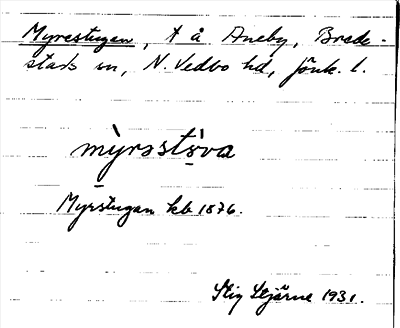 Myrestugan, t å Aneby, Brede-
stads sn, N. Vedbo hd, Jönk. l.
mỳrǝstò̤va
Myrstugan kb 1876.
Stig Stjärne 1931.